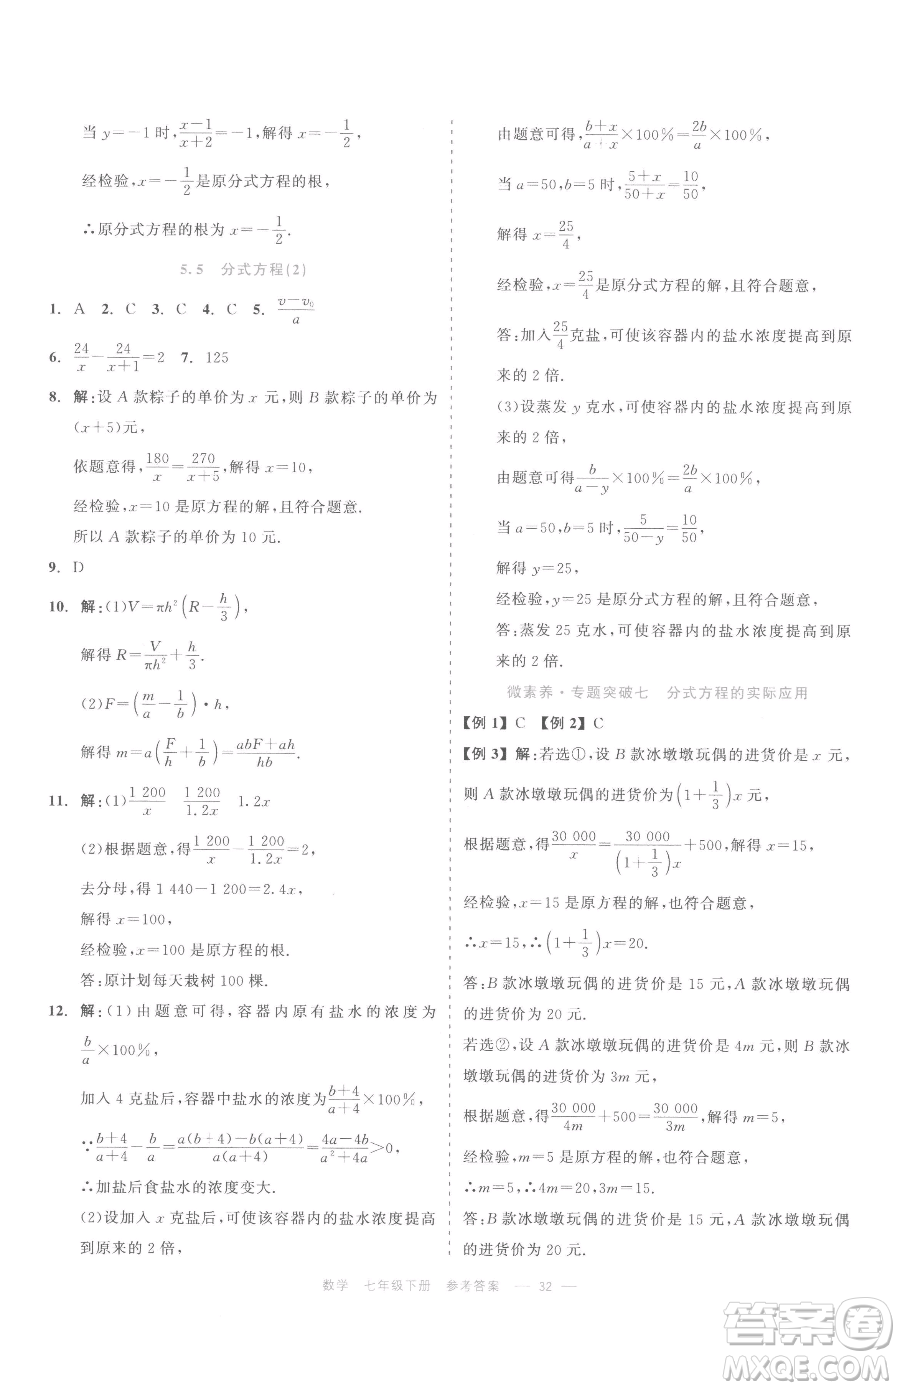 当 y=-1 时, (x-1)/(x+2)=-1, 解得 x=-1/2,
经检验, x=-1/2 是原分式方程的根,
∴原分式方程的根为 x=-1/2.
5.5 分式方程(2)
1. A 2. C 3. C 4. C 5. (v-v₀)/a
6. 24/x-24/(x+1)=2 7. 125
8. 解:设 A 款粽子的单价为 x 元,则 B 款粽子的单价为
(x+5)元,
依题意得, 180/x=270/(x+5), 解得 x=10,
经检验,x=10 是原方程的解,且符合题意.
所以 A 款粽子的单价为 10 元.
9. D
10. 解:(1)V=πh²(R-h/3),
解得 R=V/(πh²)+h/3.
(2)F=(m/a-1/b)·h,
解得 m=a(F/h+1/b)=(abF+ah)/(hb).
11. 解:(1) 1 200/x 1 200/(1.2x) 1.2x
(2)根据题意,得 1 200/x-1 200/(1.2x)=2,
去分母,得 1 440-1 200=2.4x,
解得 x=100,
经检验,x=100 是原方程的根.
答:原计划每天栽树 100 棵.
12. 解:(1)由题意可得,容器内原有盐水的浓度为
b/a×100%,
加入 4 克盐后,容器中盐水的浓度为 (b+4)/(a+4)×100%,
∵(b+4)/(a+4)-b/a=(a(b+4)-b(a+4))/(a(a+4))=(4a-4b)/(a²+4a)>0,
∴加盐后食盐水的浓度变大.
(2)设加入 x 克盐后,可使该容器内的盐水浓度提高
到原来的 2 倍,
由题意可得, (b+x)/(a+x)×100%=2b/a×100%,
当 a=50,b=5 时, (5+x)/(50+x)=10/50,
解得 x=25/4,
经检验,x=25/4 是原分式方程的解,且符合题意,
答:加入 25/4 克盐,可使该容器内的盐水浓度提高到原
来的 2 倍.
(3)设蒸发 y 克水,可使容器内的盐水浓度提高到原
来的 2 倍,
由题意可得 b/(a-y)×100%=2b/a×100%,
当 a=50,b=5 时, 5/(50-y)=10/50,
解得 y=25,
经检验,y=25 是原分式方程的解,且符合题意,
答:蒸发 25 克水,可使容器内的盐水浓度提高到原
来的 2 倍.
微素养·专题突破七 分式方程的实际应用
【例 1】C 【例 2】C
【例 3】解:若选①,设 B 款冰墩墩玩偶的进货价是 x 元,
则 A 款冰墩墩玩偶的进货价为(1+1/3)x 元,
根据题意,得 30 000/x=30 000/((1+1/3)x)+500,解得 x=15,
经检验,x=15 是原方程的解,也符合题意,
∴x=15,∴(1+1/3)x=20.
答:B 款冰墩墩玩偶的进货价是 15 元,A 款冰墩墩
玩偶的进货价是 20 元.
若选②,设 A 款冰墩墩玩偶的进货价是 4m 元,B 款
冰墩墩玩偶的进货价是 3m 元,
根据题意,得 30 000/4m+500=30 000/3m,解得 m=5,
经检验,m=5 是原方程的解,也符合题意,
∴m=5,∴4m=20,3m=15.
答:B 款冰墩墩玩偶的进货价是 15 元,A 款冰墩墩
玩偶的进货价是 20 元.
数学 七年级下册 参考答案 — 32 —
答案圈
MXQE.COM